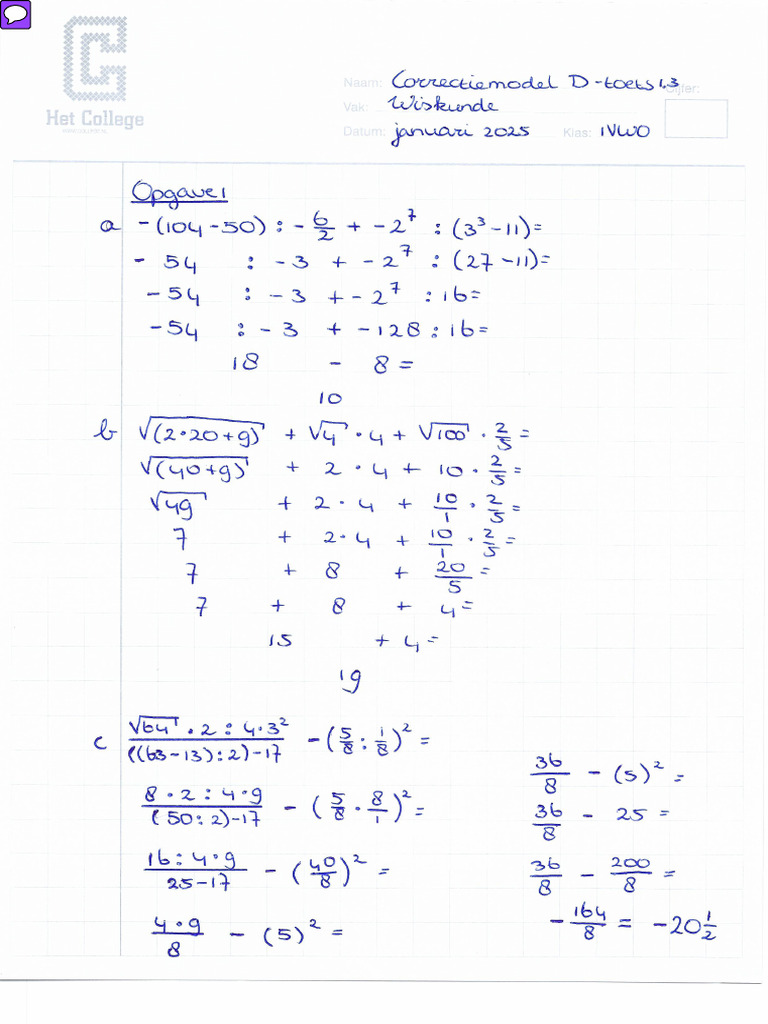 Het College
Naam: Correctiemodel D-toets 1.3
Cijfer:
Vak: Wiskunde
Datum: januari 2025 Klas: 1VWO
Opgave 1
a -(104-50) : -6/2 + -2⁷ : (3³-11)=
- 54 : -3 + -2⁷ : (27-11)=
-54 : -3 + -2⁷ : 16=
-54 : -3 + -128 : 16=
18 - 8 =
10
b √(2·20+9) + √4 · 4 + √100 · 2/5=
√(40+9) + 2 · 4 + 10 · 2/5=
√49 + 2 · 4 + 10/1 · 2/5=
7 + 2·4 + 10/1 · 2/5=
7 + 8 + 20/5=
7 + 8 + 4=
15 + 4=
19
c √64 · 2 : 4·3² / ((63-13):2)-17 - (5/8 : 1/8)² =
8 · 2 : 4·9 / (50:2)-17 - (5/8 · 8/1)² =
16 : 4·9 / 25-17 - (40/8)² =
4·9 / 8 - (5)² =
36/8 - (5)² =
36/8 - 25 =
36/8 - 200/8 =
-164/8 = -20 1/2